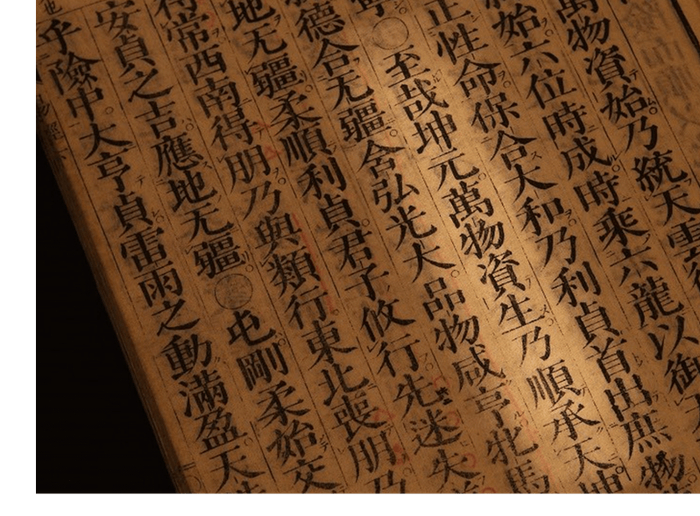 萬物資始乃統天雲
始六位時成時乘六龍以御
正性命保合大和乃利貞首出庶物
至哉坤元萬物資生乃順承天坤
德合无疆含弘光大品物咸亨牝馬
地无疆柔順利貞君子攸行先迷失
得常西南得朋乃與類行東北喪朋乃
安貞之吉應地无疆屯剛柔始交
乎險中大亨貞雷雨之動滿盈天